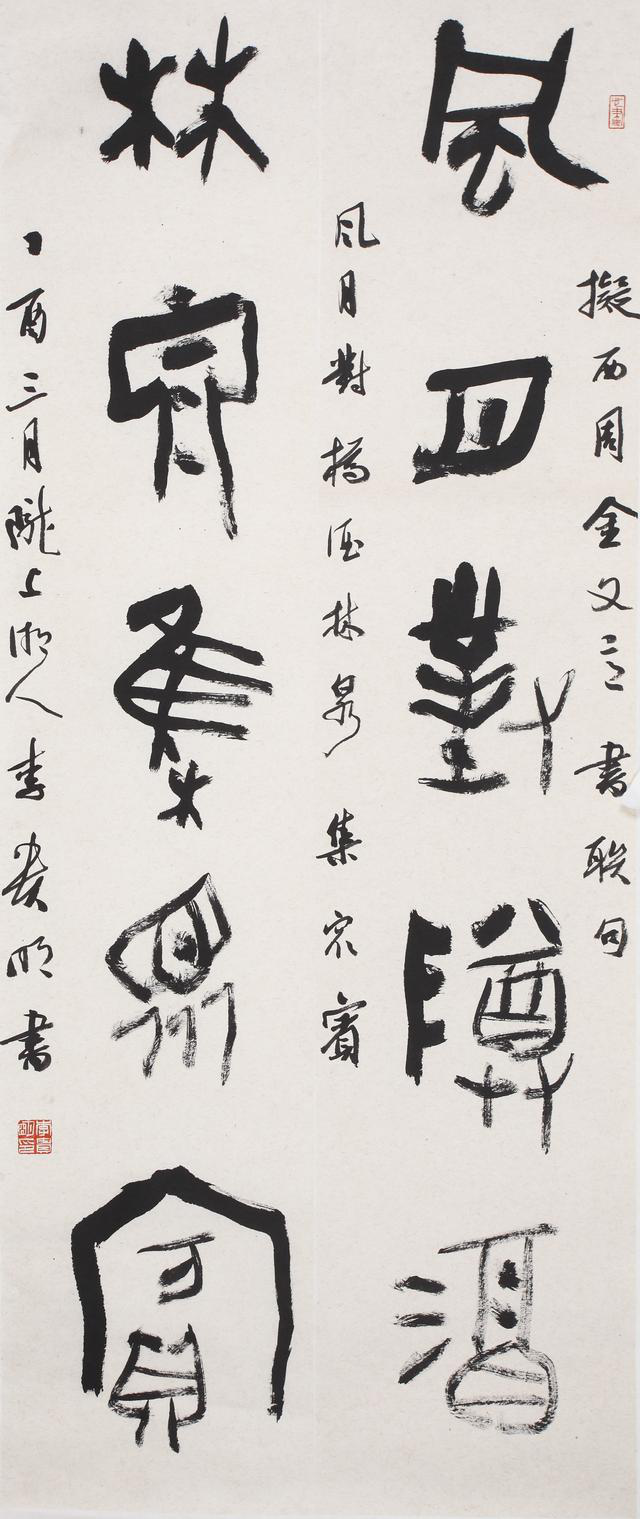 擬西周金文意書联句
風月對樽酒
风月對樽酒林泉集众賓
林泉集眾賓
丁酉三月隴上湖人李贵明書